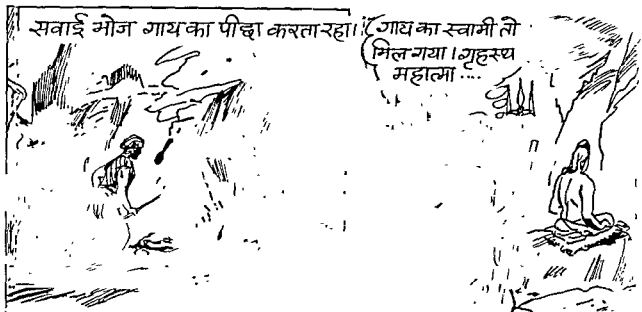 सवाई भोज गाय का पीछा करता रहा।
गाय का स्वामी तो
मिल गया। गृहस्थ
महात्मा....